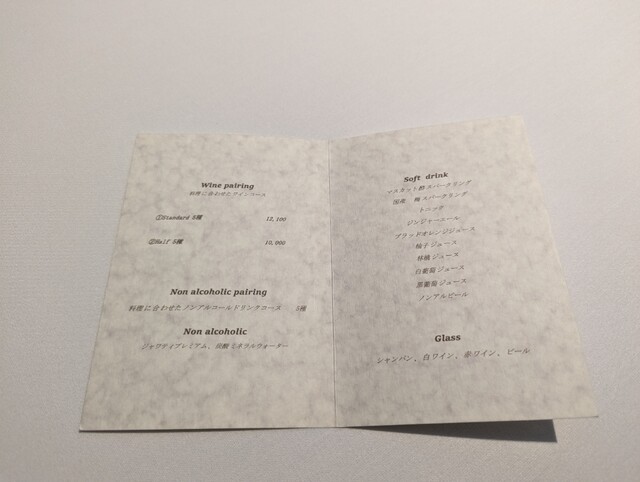 Wine pairing
料理に合わせたワインコース
①Standard 5種 12,100
②Half 5種
Non alcoholic pairing
料理に合わせたノンアルコールドリンクコース 5種
Non alcoholic
ジャワティプレミアム、炭酸ミネラルウォーター
Soft drink
マスカット酢スパークリング
国産 梅スパークリング
トニック
ジンジャーエール
ブラッドオレンジジュース
柚子ジュース
林檎ジュース
白葡萄ジュース
黒葡萄ジュース
ノンアルビール
Glass
シャンパン、白ワイン、赤ワイン、ビール